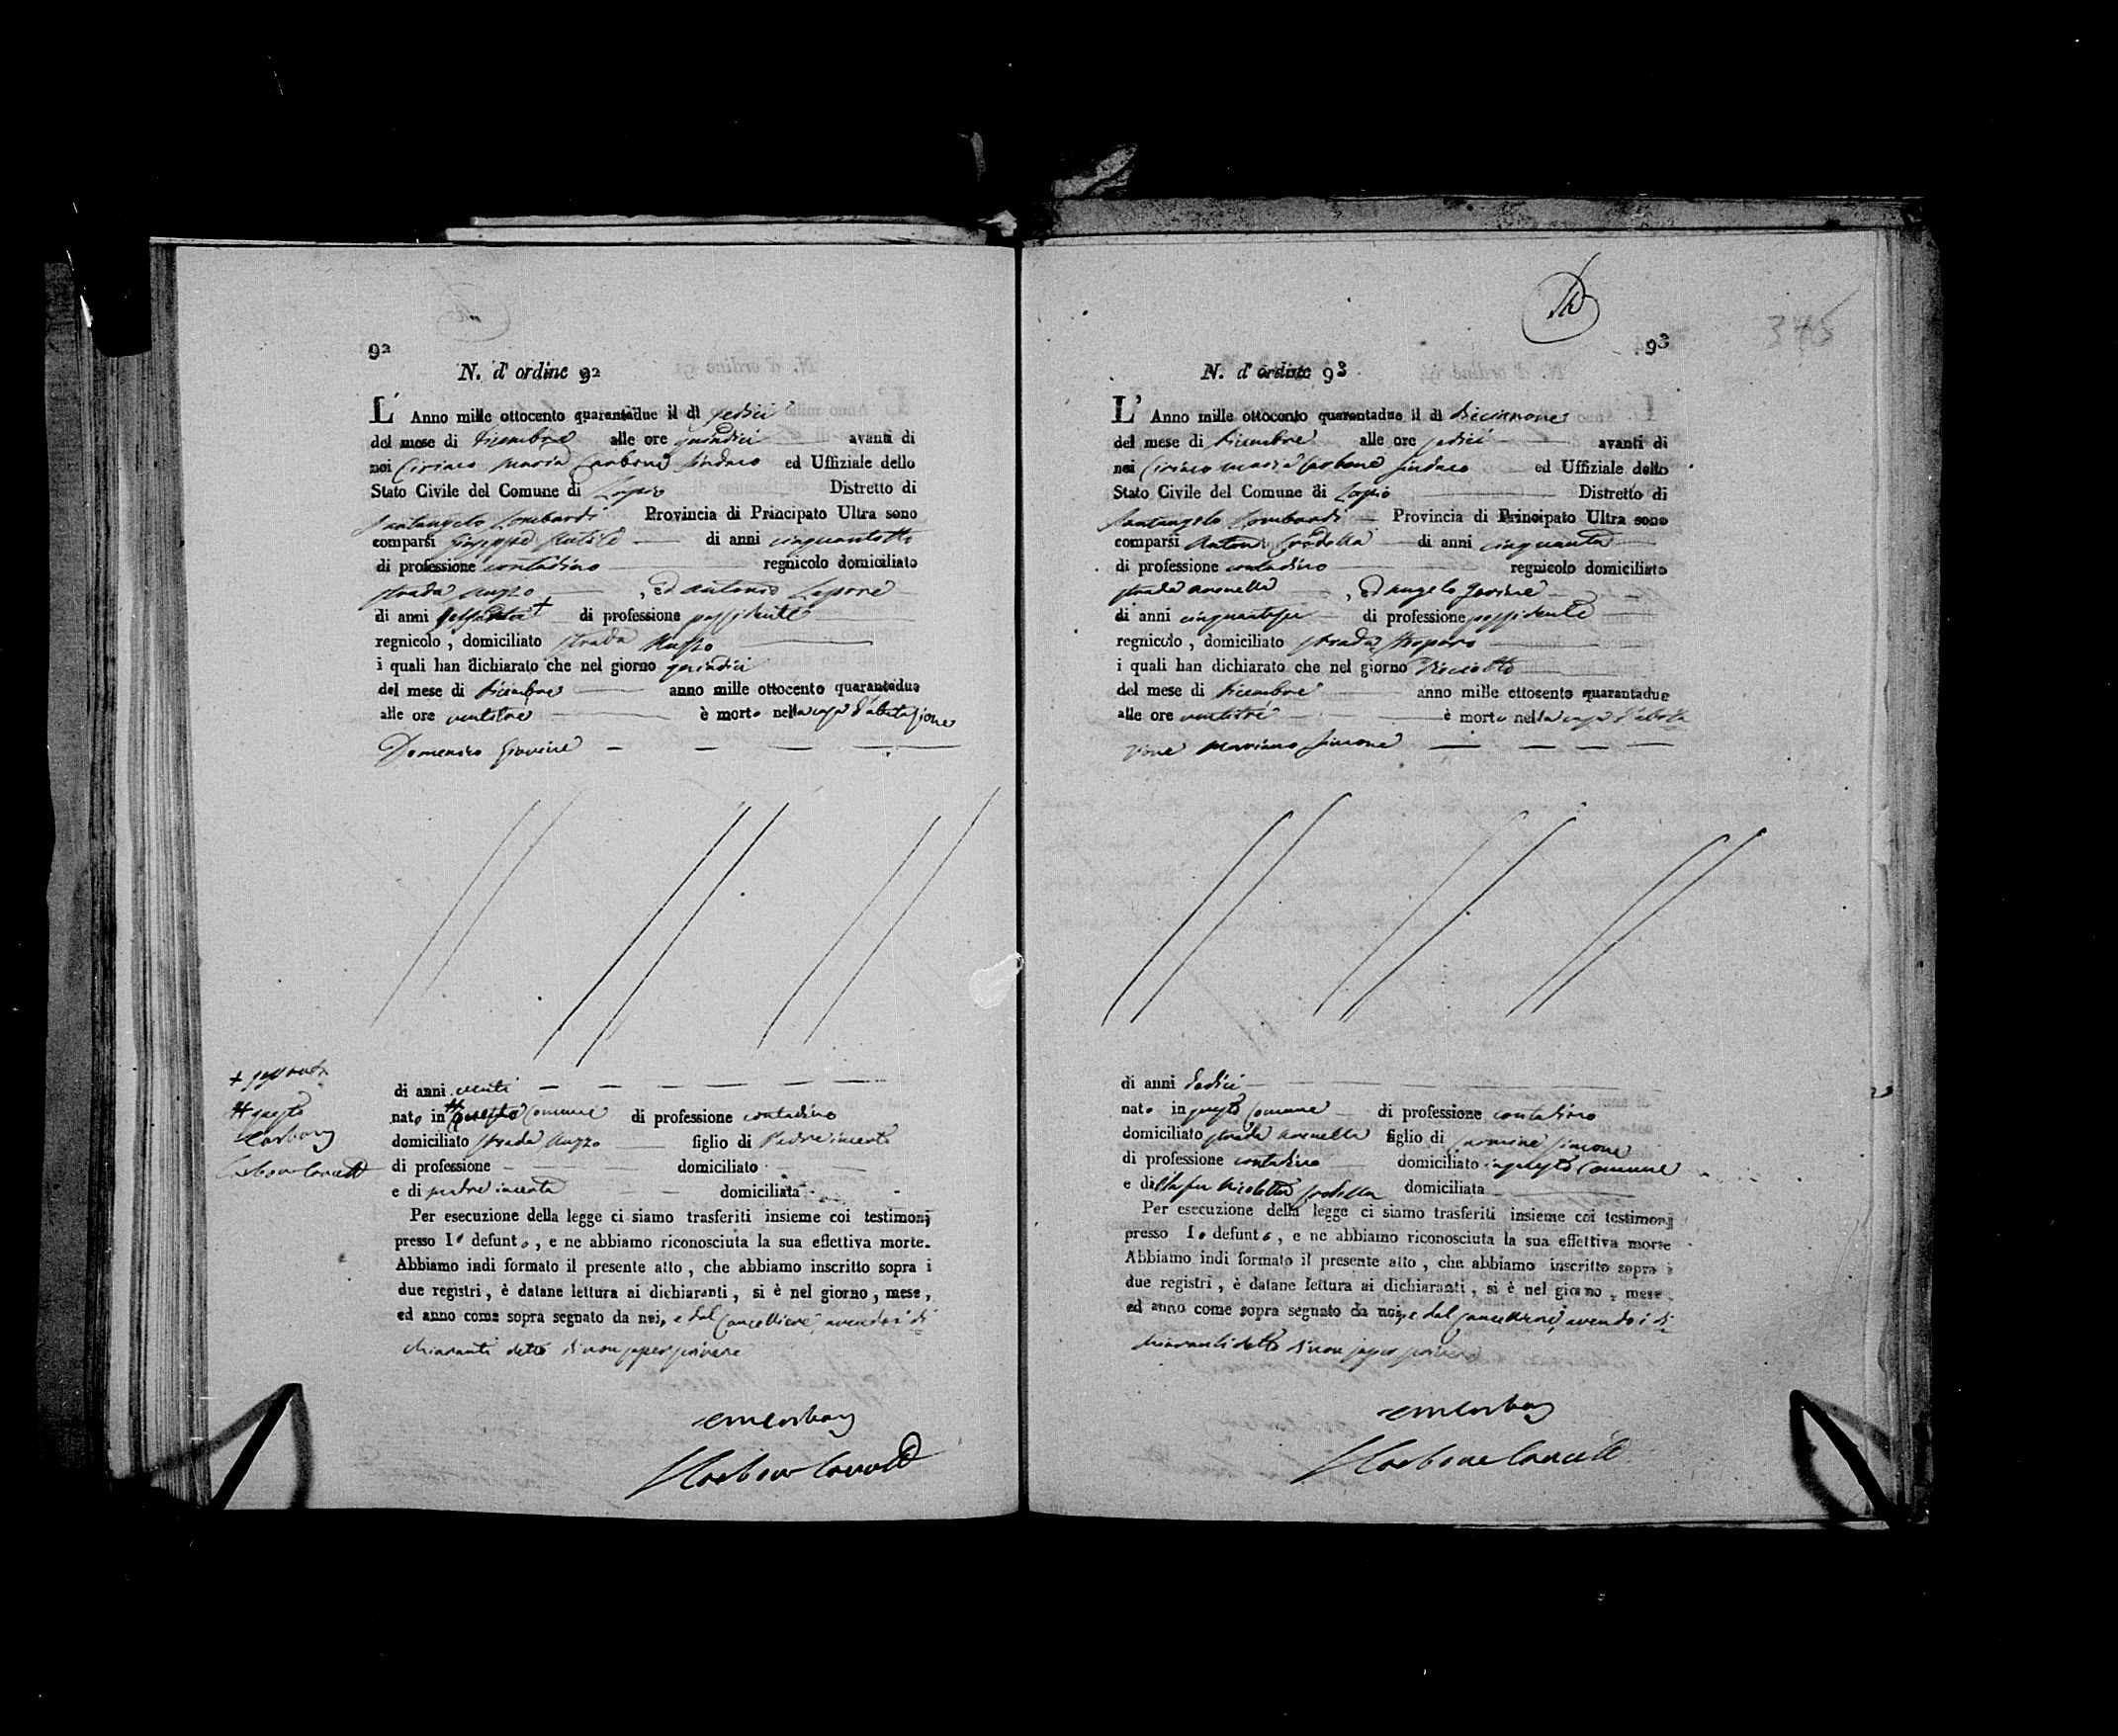 92
N. d' ordine 92
L' Anno mille ottocento quarantadue il dì sedici
del mese di Dicembre alle ore quindici avanti di
noi Ciriaco Maria Carbone Sindaco ed Uffiziale dello
Stato Civile del Comune di Lapio Distretto di
Santangelo Lombardi Provincia di Principato Ultra sono
comparsi Giuseppe di anni cinquantotto
di professione contadino regnicolo domiciliato
strada , ed Antonio Lepore
di anni + di professione possidente
regnicolo , domiciliato strada
i quali han dichiarato che nel giorno quindici
del mese di Dicembre anno mille ottocento quarantadue
alle ore ventitre è morto nella casa d'abitazione
Domenico Giovine
di anni venti
nato in # questo Comune di professione contadino
domiciliato strada figlio di Padre incerto
di professione domiciliato
e di madre incerta domiciliata
Per esecuzione della legge ci siamo trasferiti insieme coi testimonj
presso lo defunto , e ne abbiamo riconosciuta la sua effettiva morte.
Abbiamo indi formato il presente atto , che abbiamo inscritto sopra i
due registri , è datane lettura ai dichiaranti , si è nel giorno , mese ,
ed anno come sopra segnato da noi, e dal Cancelliere, avendo i di
chiaranti detto di non saper scrivere
+ sessanta
# questo
Carbone
Carbone Cancell
CMCarbone
Carbone Cancell
345
93
N. d' ordine 93
L' Anno mille ottocento quarantadue il dì diciannove
del mese di Dicembre alle ore sedici avanti di
noi Ciriaco Maria Carbone Sindaco ed Uffiziale dello
Stato Civile del Comune di Lapio Distretto di
Santangelo Lombardi Provincia di Principato Ultra sono
comparsi Antonio di anni cinquanta
di professione contadino regnicolo domiciliato
strada Arenella , ed Angelo Giovine
di anni cinquantasei di professione possidente
regnicolo , domiciliato strada
i quali han dichiarato che nel giorno Diciotto
del mese di Dicembre anno mille ottocento quarantadue
alle ore ventitre è morto nella casa d'abita
zione Mariano Simone
di anni dodici
nato in questo Comune di professione contadino
domiciliato strada Arenella figlio di Carmine Simone
di professione contadino domiciliato in questo Comune
e della fu Nicoletta domiciliata
Per esecuzione della legge ci siamo trasferiti insieme coi testimonj
presso lo defunto , e ne abbiamo riconosciuta la sua effettiva morte
Abbiamo indi formato il presente atto , che abbiamo inscritto sopra i
due registri , è datane lettura ai dichiaranti , si è nel giorno , mese ,
ed anno come sopra segnato da noi, e dal Cancelliere, avendo i di
chiaranti detto di non saper scrivere
CMCarbone
Carbone Cancell